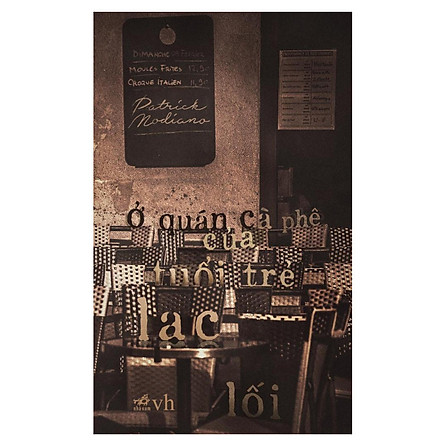 MOULES FRITES 12,50
CROQUE ITALIEN
Patrick
Modiano
Ở quán cà phê
của
tuổi trẻ
lạc
lối
nhã nam
vh